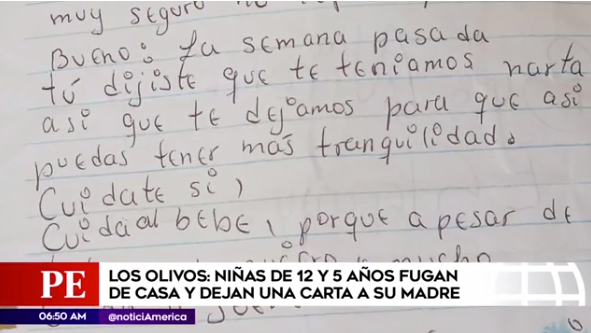 muy seguro no
Bueno: La semana pasada
tú dijiste que te teniamos harta
asi que te dejamos para que asi
puedas tener más tranquilidad.
Cuidate si,
Cuida al bebe, porque apesar de
mucho
PE
LOS OLIVOS: NIÑAS DE 12 Y 5 AÑOS FUGAN
DE CASA Y DEJAN UNA CARTA A SU MADRE
06:50 AM
@noticiAmerica